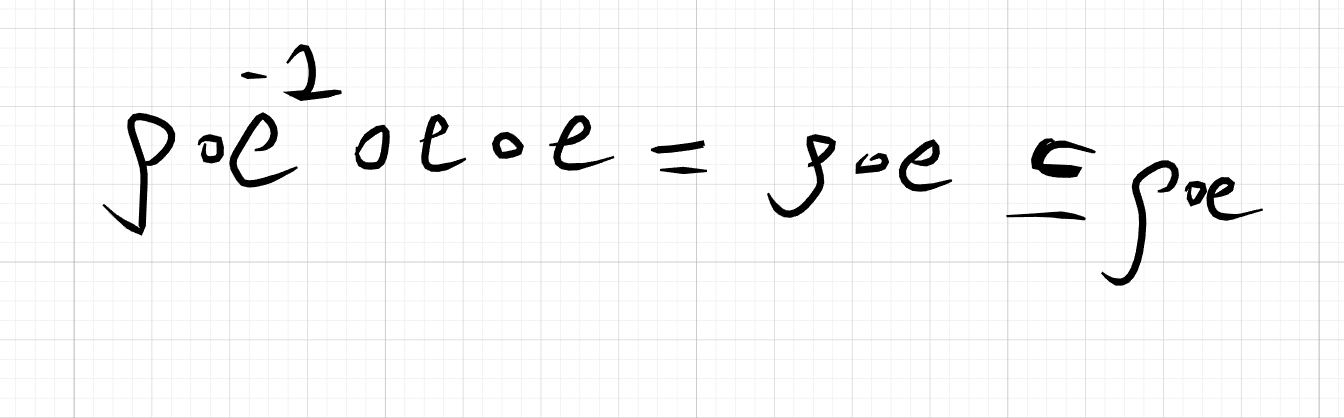 ρ∘e⁻¹∘e∘e = ρ∘e ⊆ ρ∘e